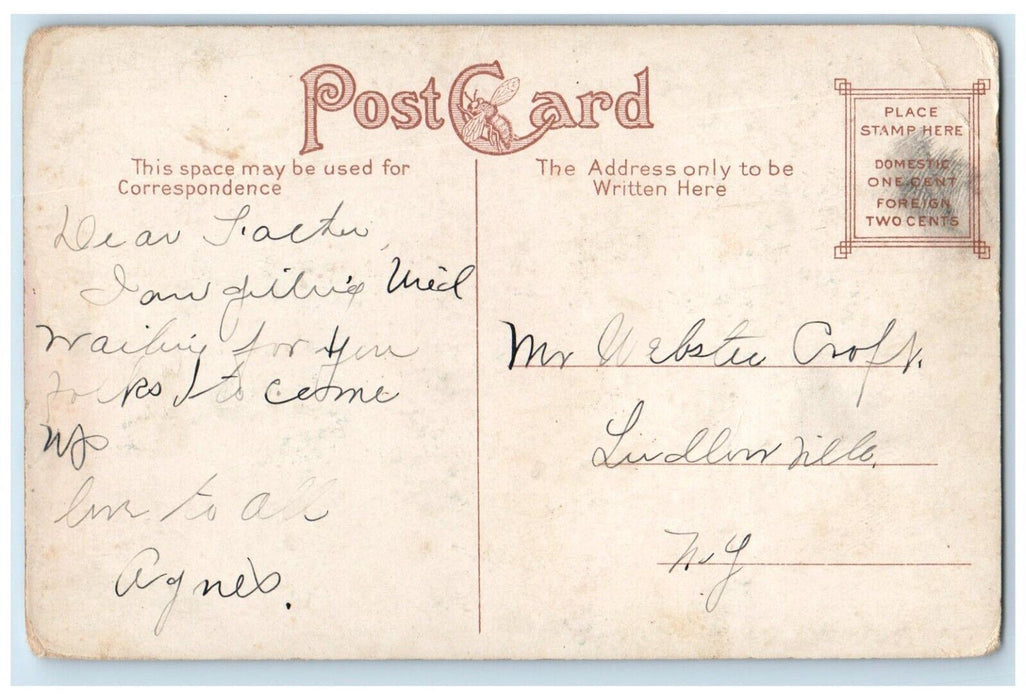 Post Card
This space may be used for
Correspondence
The Address only to be
Written Here
PLACE
STAMP HERE
DOMESTIC
ONE CENT
FOREIGN
TWO CENTS
Dear
I am
waiting for you
folks to come
up
love to all
Agnes.
Mr Webster Croft.
Ludlowville.
N.Y